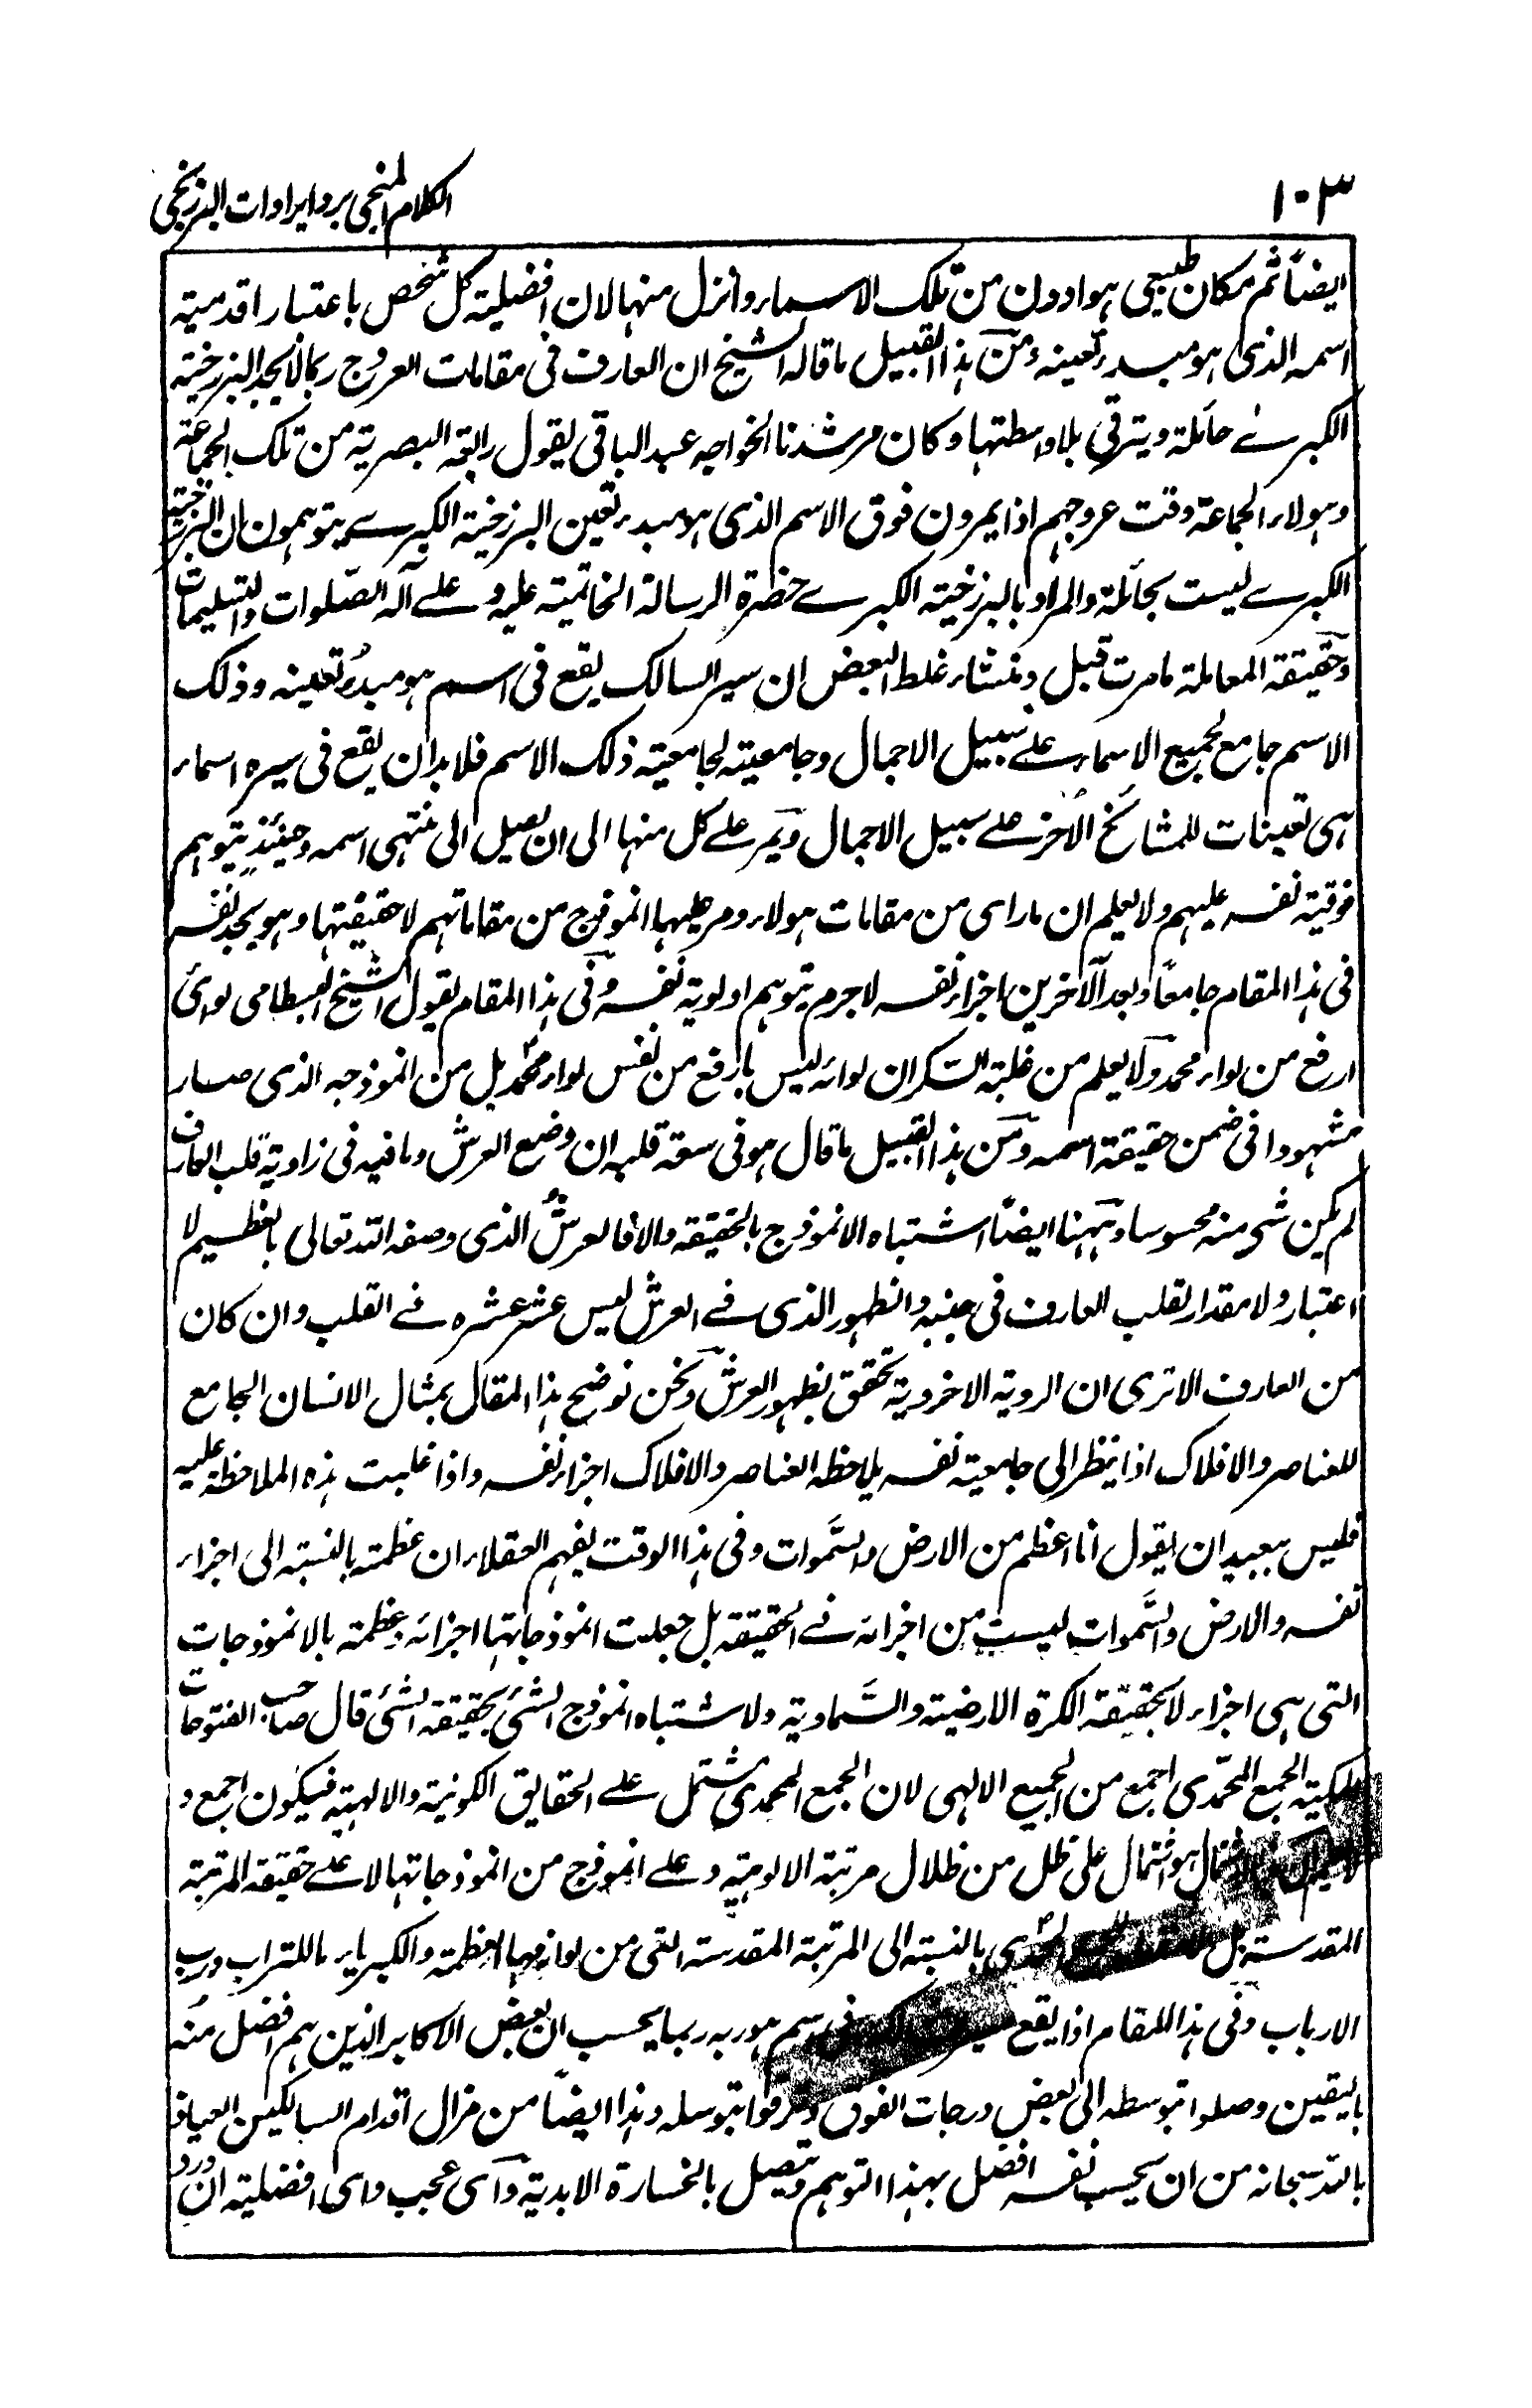 ١٠٣
الكلام المنجى برد ايرادات البرزنجى
ايضاً ثم مكان طبيعى هو ادون من تلك الاسماء وانزل منها لان افضلية كل شخص باعتبار اقدمية
اسمه الذى هو مبدء تعينه ومن هذا القبيل ما قاله الشيخ ان العارف فى مقامات العروج ربما لا يجد البرزخية
الكبرے حائلة ويترقى بلا واسطتها وكان مرشدنا الخواجه عبد الباقى يقول رابعة البصرية من تلك الجماعة
وهولاء الجماعة وقت عروجهم اذا يمرون فوق الاسم الذى هو مبدء تعين البرزخية الكبرے يتوهمون ان البرزخية
الكبرے ليست بحائلة والمراد بالبرزخية الكبرے حضرة الرسالة الخاتمية عليه وعلے آله الصّلوات والتسليمات
وحقيقة المعاملة ما مرت قبل ومنشاء غلط البعض ان سير السالك يقع فى اسم هو مبدءُ تعينه وذلك
الاسم جامع لجميع الاسماء علے سبيل الاجمال وجامعيته لجامعية ذلك الاسم فلابد ان يقع فى سيره اسماء
هى تعينات للمشائخ الاُخر علے سبيل الاجمال ويمر علے كل منها الى ان يصل الى منتهى اسمه وحينئذٍ يتوهم
فوقية نفسه عليهم ولا يعلم ان ما راى من مقامات هولاء ومر عليها انموذج من مقاماتهم لا حقيقتها وهو يجد نفسه
فى هذا المقام جامعاً ويعد الآخرين اجزاء نفسه لا جرم يتوهم اولوية نفسه وفى هذا المقام يقول الشيخ البسطامى لوائى
ارفع من لواء محمد ولا يعلم من غلبة السكر ان لوائه ليس بارفع من نفس لواء محمّد بل من انموذجه الذى صار
مشهودا فى ضمن حقيقة اسمه ومن هذا القبيل ما قال هو فى سعة قلبه ان وضع العرش وما فيه فى زاوية قلب العارف
لم يكن شى منه محسوسا وههنا ايضاً اشتباه الانموذج بالحقيقة والا فالعرشُ الذى وصفه الله تعالى بالعظيم لا
اعتبار ولا مقدار لقلب العارف فى جنبه والظهور الذى فے العرش ليس عشر عشره فے القلب وان كان
من العارف الا ترى ان الروية الاخروية تحقق بظهور العرش ونحن نوضح هذا المقال بمثال الانسان الجامع
للعناصر والافلاك اذا ينظر الى جامعية نفسه يلاحظه العناصر والافلاك اجزاء نفسه واذا غلبت هذه الملاحظة عليه
فليس ببعيد ان يقول انا اعظم من الارض والسَّموات وفى هذا الوقت يفهم العقلاء ان عظمته بالنسبة الى اجزاء
نفسه والارض والسَّموات ليست من اجزائه فے الحقيقة بل جعلت انموذجاتها اجزائه وعظمته بالانموذجات
التى هى اجزاء لا بحقيقة الكرة الارضية والسَّماوية ولاشتباه انموذج الشئ بحقيقة الشئ قال صاحب الفتوحات
المكية الجمع المحمّدى اجمع من الجمع الالهى لان الجمع المحمدى مشتمل علے الحقايق الكونية والالهية فيكون اجمع و
هو اشتمال على ظل من ظلال مرتبة الالوهية وعلے انموذج من انموذجاتها لا علے حقيقة المرتبة
المقدسة بل بالنسبة الى المرتبة المقدسة التى من لوازمها العظمة والكبرياء ما للتراب ورب
الارباب وفى هذا المقام اذا يقع فى اسم هو ربه ربما يحسب ان بعض الاكابر الذين هم افضل منه
باليقين وصلوا بتوسطه الى بعض درجات الفوق وترقوا بتوسله وهذا ايضاً من مزال اقدام السالكين العياذ
بالله سبحانه من ان يحسب نفسه افضل بهذا التوهم ويتصل بالخسارة الابدية وآى عجب واى افضلية ان ورد